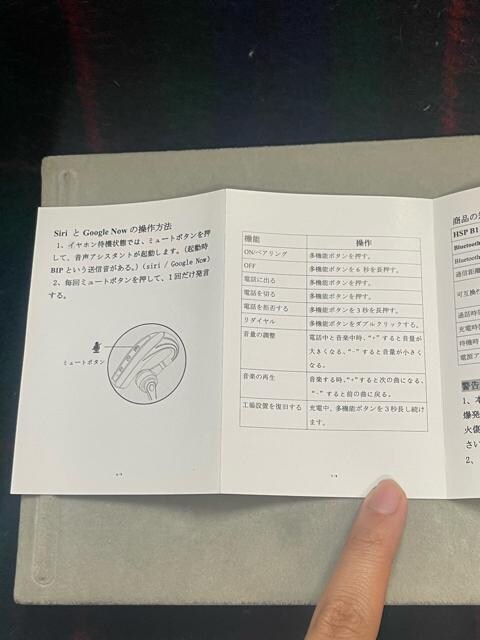 Siri と Google Now の操作方法
1、イヤホン待機状態では、ミュートボタンを押
して、音声アシスタントが起動します。（起動時
BIP という送信音がある。）（siri / Google Now）
2、毎回ミュートボタンを押して、1回だけ発言
する。
ミュートボタン
機能 操作
ON/ペアリング 多機能ボタンを押す。
OFF 多機能ボタンを 6 秒を長押す。
電話に出る 多機能ボタンを押す。
電話を切る 多機能ボタンを押す。
電話を拒否する 多機能ボタンを 3 秒を長押す。
リダイヤル 多機能ボタンをダブルクリックする。
音量の調整 電話中と音楽中時、"+"すると音量が
大きくなる、"-"すると音量が小さく
なる。
音楽の再生 音楽する時、"+"すると次の曲になる、
"-"すると前の曲に戻る。
工場設置を復旧する 充電中、多機能ボタンを3秒長し続け
ます。
商品の
HSP B1
Bluetooth
Bluetooth
通信距離
可互換
通話時
充電時
待機時
電源ア
警告
1、本
爆発
火傷
さい
2、